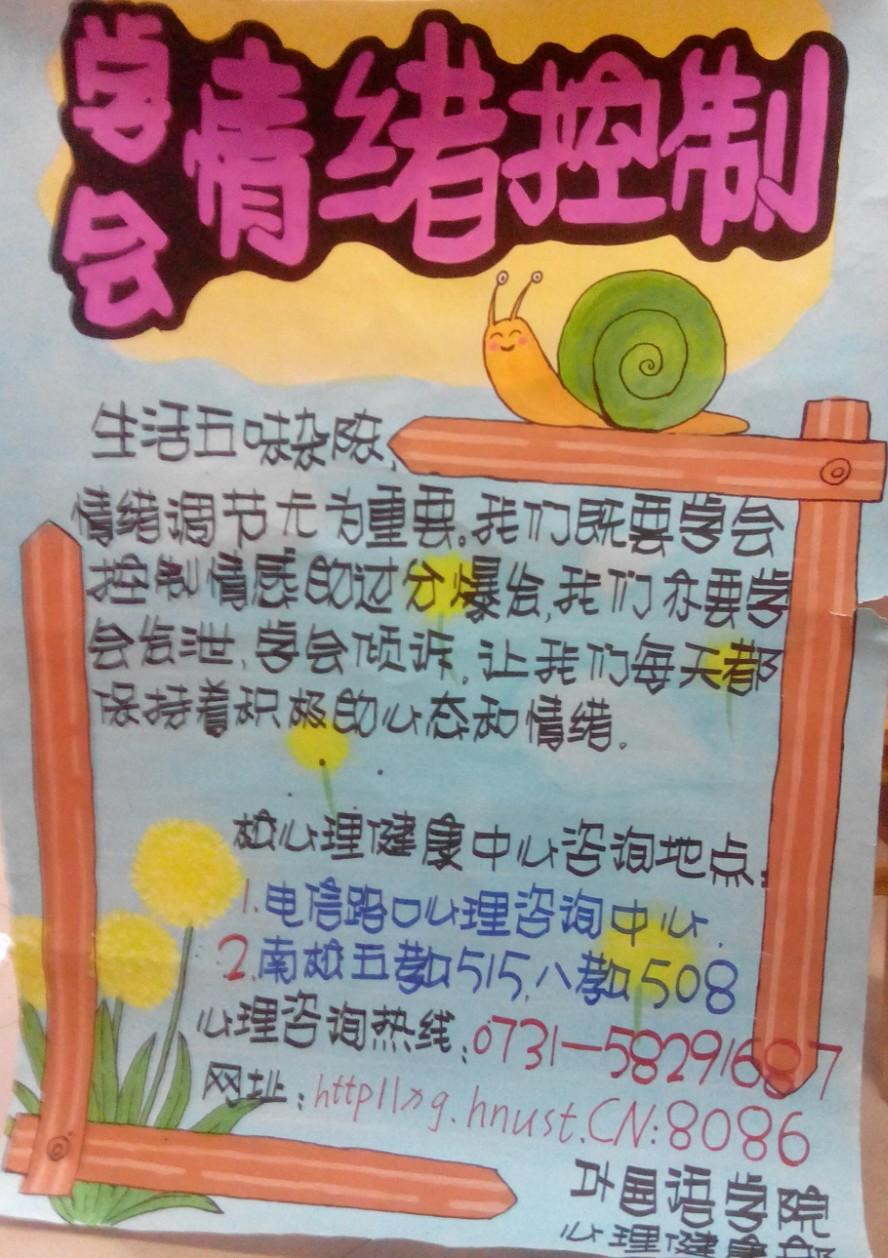 学会情绪控制
生活五味杂陈,
情绪调节尤为重要。我们既要学会
控制情感的过分爆发,我们亦要学
会发泄,学会倾诉,让我们每天都
保持着积极的心态和情绪。
校心理健康中心咨询地点:
1.电信路口心理咨询中心.
2.南校五教515,八教508
心理咨询热线:0731—58291687
网址:http11xg.hnust.CN:8086
外国语学院
心理健康